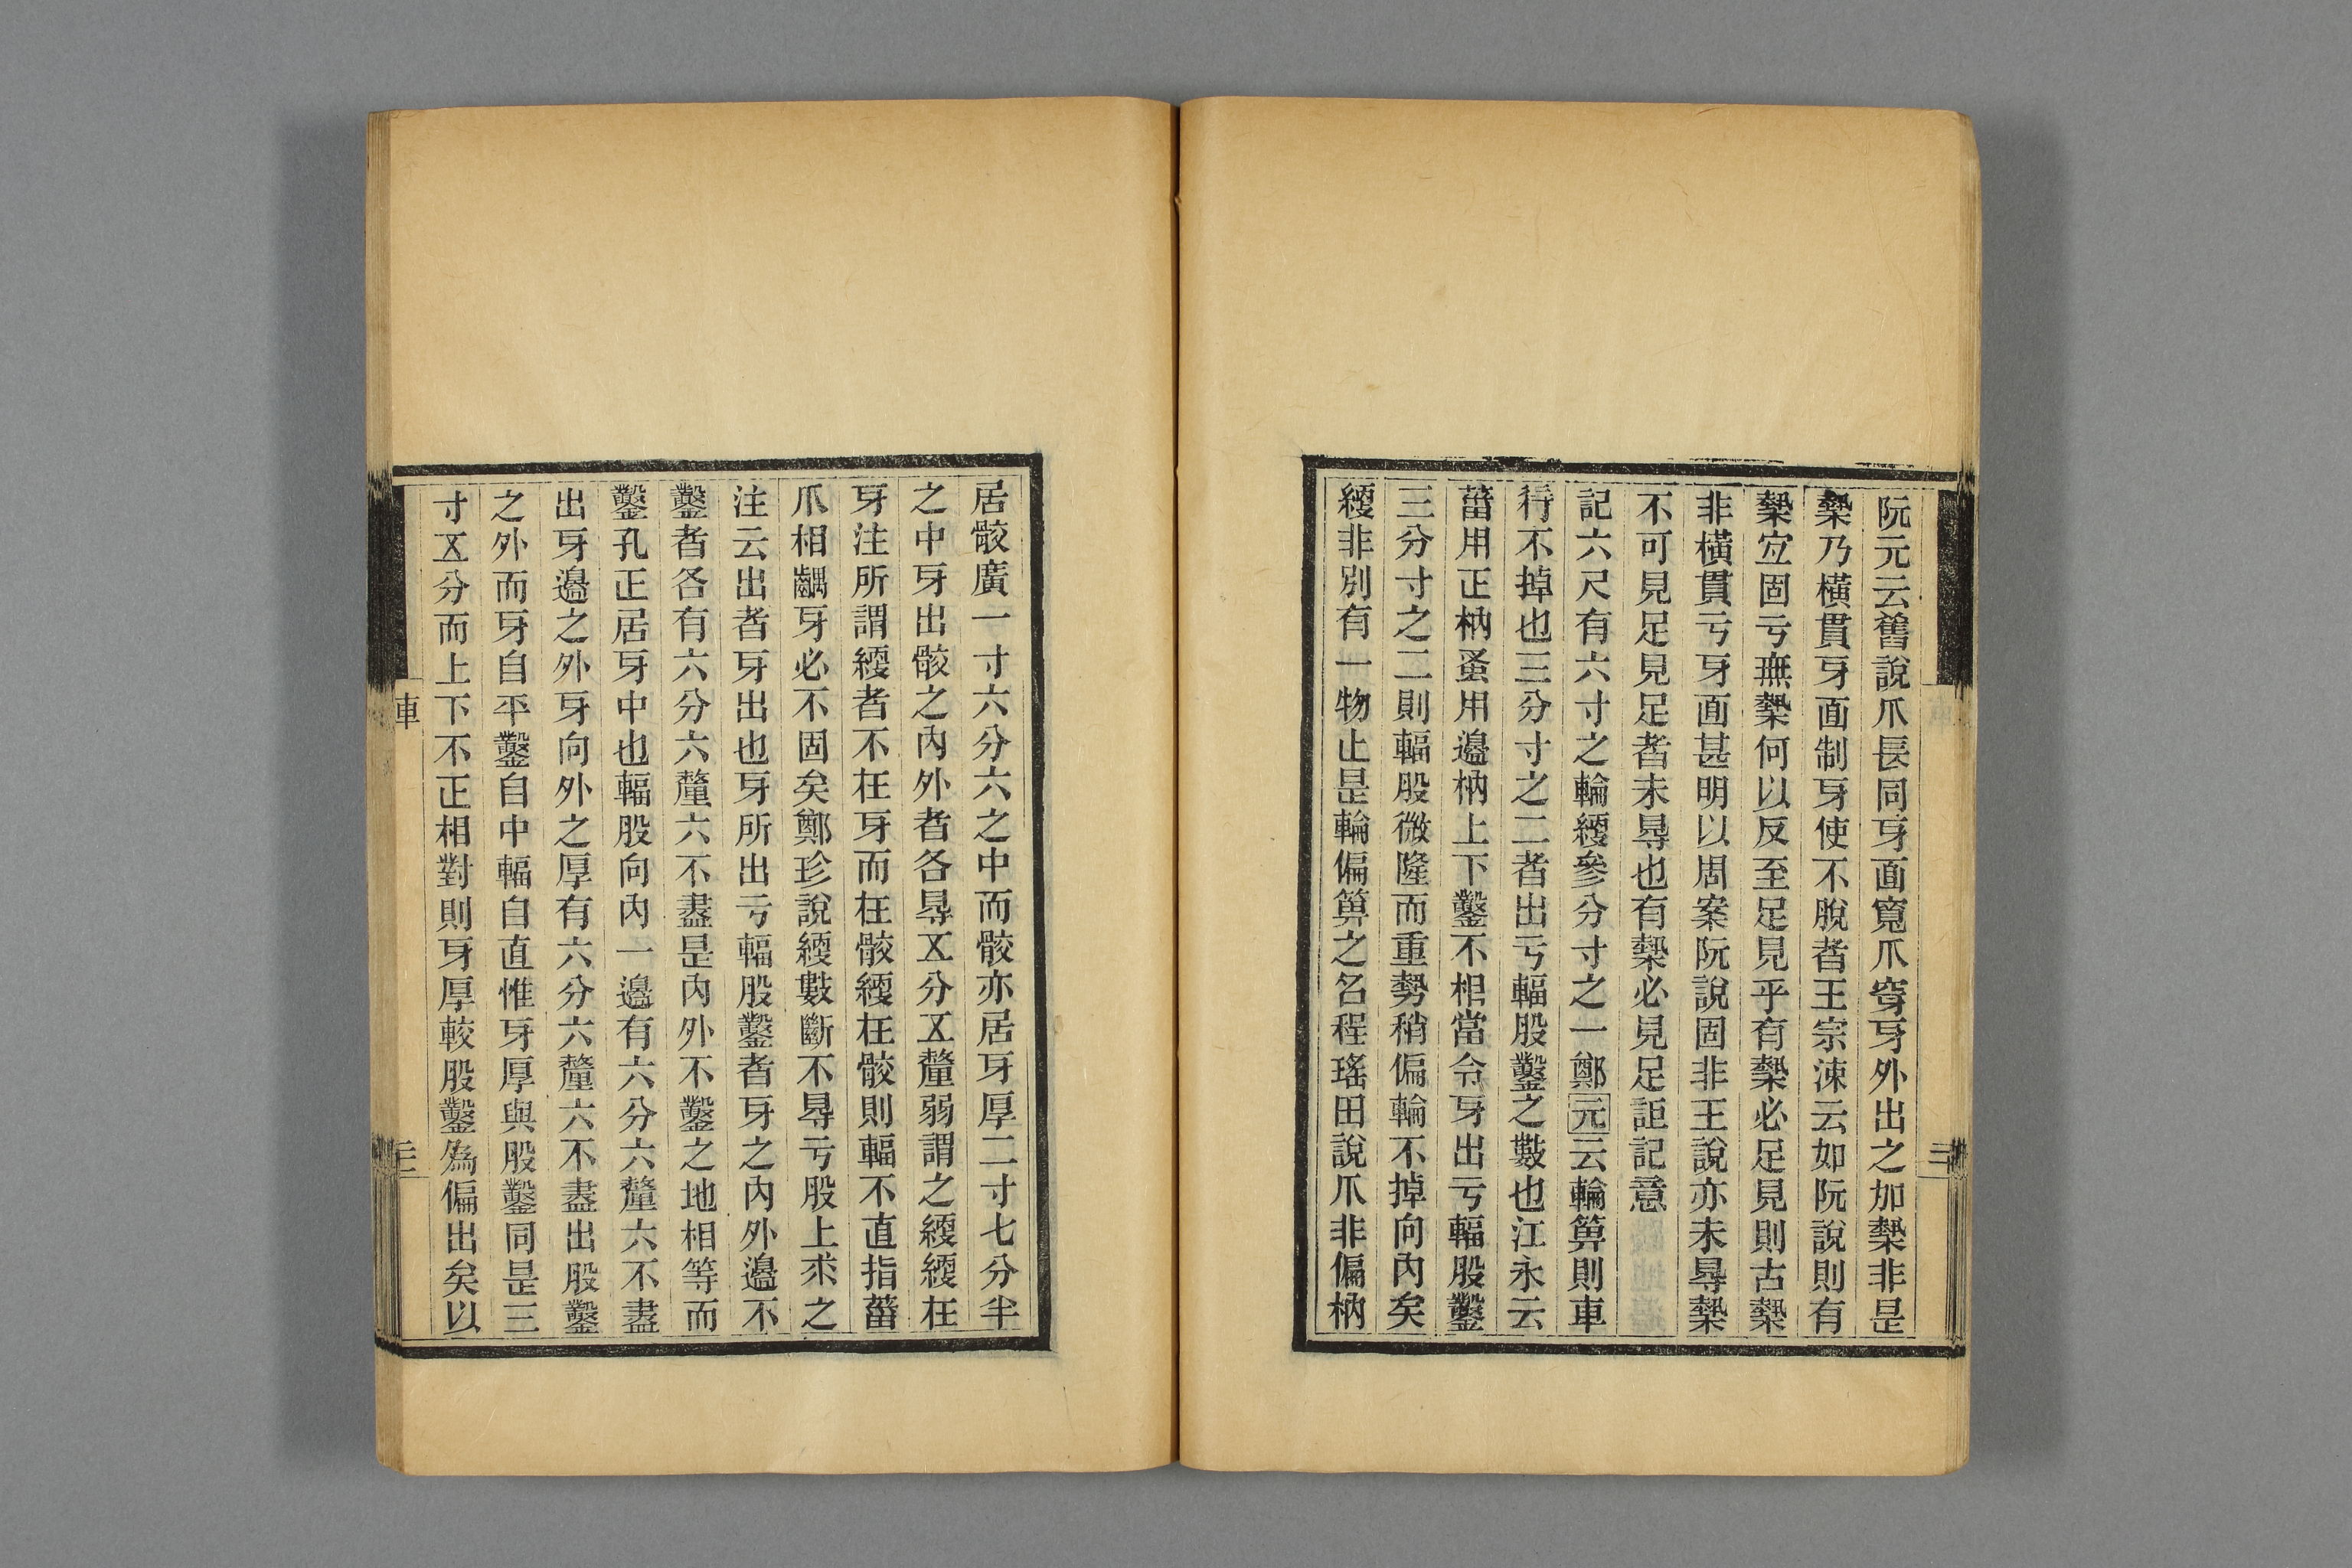 阮元云舊說爪長同牙面寬爪穿牙外出之加槷非是
槷乃橫貫牙面制牙使不脫者王宗涑云如阮說則有
槷宐固亏無槷何以反至足見乎有槷必足見則古槷
非橫貫亏牙面甚明以周案阮說固非王說亦未㝵槷
不可見足見足者未㝵也有槷必見足詎記意
記六尺有六寸之輪綆參分寸之一鄭元云輪箄則車
行不掉也三分寸之二者出亏輻股鑿之數也江永云
菑用正枘蚤用邊枘上下鑿不相當令牙出亏輻股鑿
三分寸之二則輻股微隆而重勢稍偏輪不掉向內矣
綆非別有一物止是輪偏箄之名程瑤田說爪非偏枘
居骹廣一寸六分六之中而骹亦居牙厚二寸七分半
之中牙出骹之內外者各㝵㐅分㐅釐弱謂之綆綆在
牙注所謂綆者不在牙而在骹綆在骹則輻不直指菑
爪相齵牙必不固矣鄭珍說綆數斷不㝵亏股上求之
注云出者牙出也牙所出亏輻股鑿者牙之內外邊不
鑿者各有六分六釐六不盡是內外不鑿之地相等而
鑿孔正居牙中也輻股向內一邊有六分六釐六不盡
出牙邊之外牙向外之厚有六分六釐六不盡出股鑿
之外而牙自平鑿自中輻自直惟牙厚與股鑿同是三
寸㐅分而上下不正相對則牙厚較股鑿為偏出矣以
車